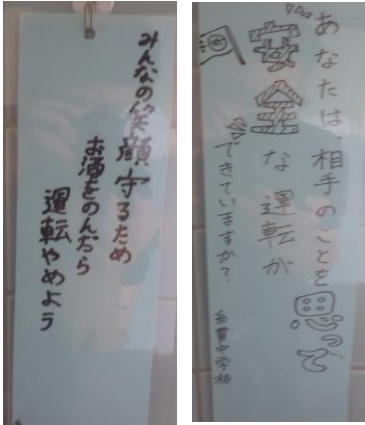 みんなの笑顔守るため
お酒をのんだら
運転やめよう
あなたは、相手のことを思って
安全な運転が
できていますか？
糸貫中学校